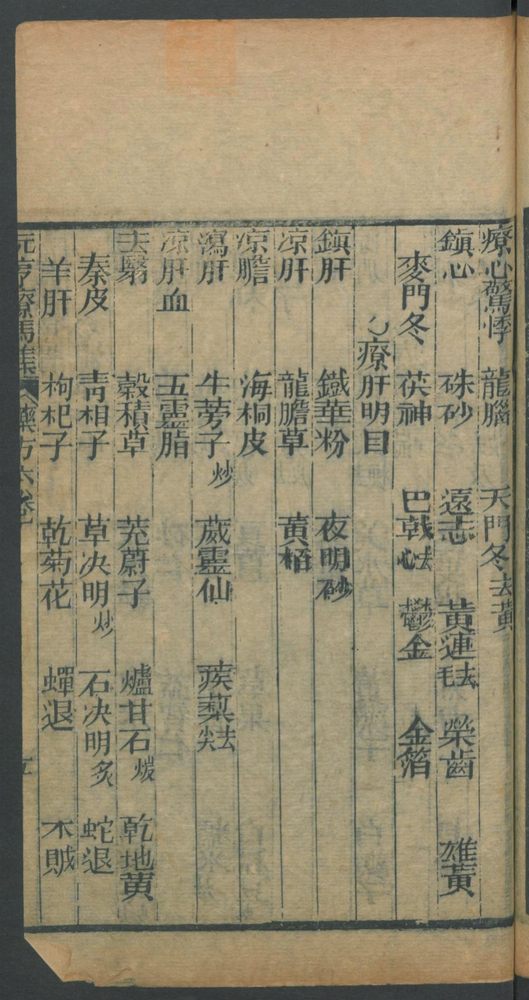 療心驚悸 龍腦 天門冬去黃
鎮心 硃砂 遠志 黃連去毛 柴齒 雄黃
麥門冬 茯神 巴戟去心 鬱金 金箔
療肝明目
鎮肝 鐵華粉 夜明砂
凉肝 龍膽草 黃栢
凉膽 海桐皮
瀉肝 牛蒡子炒 葳靈仙 蒺䔧去尖
凉肝血 五靈脂
去翳 穀積草 茺蔚子 爐甘石煅 乾地黃
秦皮 青相子 草决明炒 石决明炙 蛇退
羊肝 枸杞子 乾菊花 蟬退 木賊
元亨療馬集 藥方六卷